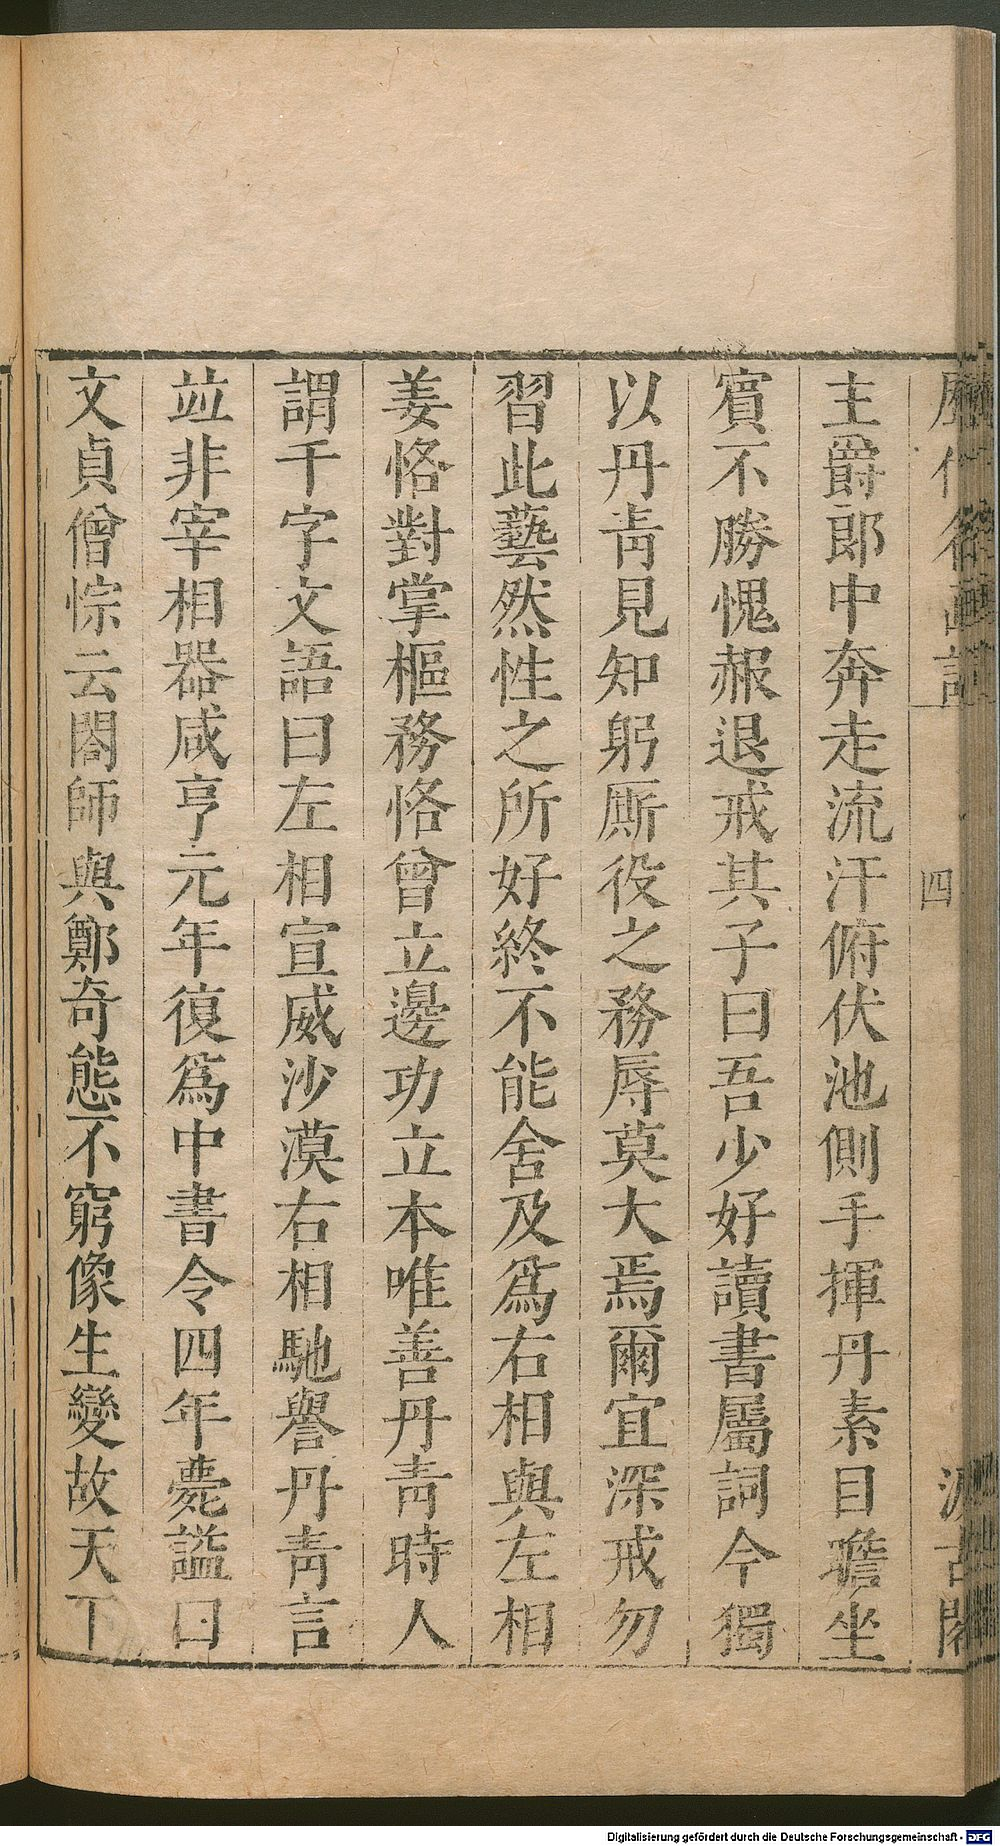 歷代名畫記
四
汲古閣
主爵郎中奔走流汗俯伏池側手揮丹素目瞻坐
賓不勝愧赧退戒其子曰吾少好讀書屬詞今獨
以丹靑見知躬厮役之務辱莫大焉爾宜深戒勿
習此藝然性之所好終不能舍及爲右相與左相
姜恪對掌樞務恪曾立邊功立本唯善丹靑時人
謂千字文語曰左相宣威沙漠右相馳譽丹靑言
竝非宰相器咸亨元年復爲中書令四年薨謚曰
文貞僧悰云閻師與鄭奇態不窮像生變故天下
Digitalisierung gefördert durch die Deutsche Forschungsgemeinschaft - DFG